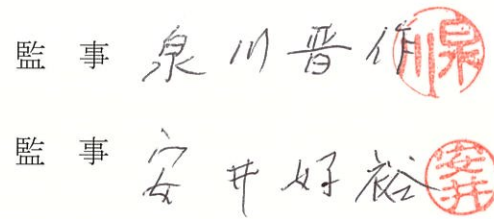 監 事 泉川晋作 泉川
監 事 安井好裕 安井